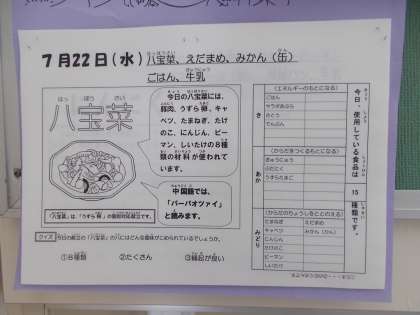 7月22日(水) 八宝菜、えだまめ、みかん(缶)
ごはん、牛乳
はっ ぽう さい
八宝菜
今日の八宝菜には、
豚肉、うずら卵、キャ
ベツ、たまねぎ、たけ
のこ、にんじん、ピー
マン、しいたけの8種
類の材料が使われて
います。
中国語では、
「バーバオツァイ」
と読みます。
クイズ 今日の献立の「八宝菜」の八にはどんな意味がこめられているでしょうか。
①8種類 ②たくさん ③縁起が良い
今日、使用している食品は 15 種類です。
(エネルギーのもとになる)
き
ごはん
さとう
でんぷん
(からだをつくるもとになる)
あか
ぎゅうにゅう
ぶたにく
うずらたまご
(からだのちょうしをととのえる)
みどり
たまねぎ えだまめ
キャベツ みかん(かん)
にんじん
たけのこ
ピーマン
しいたけ